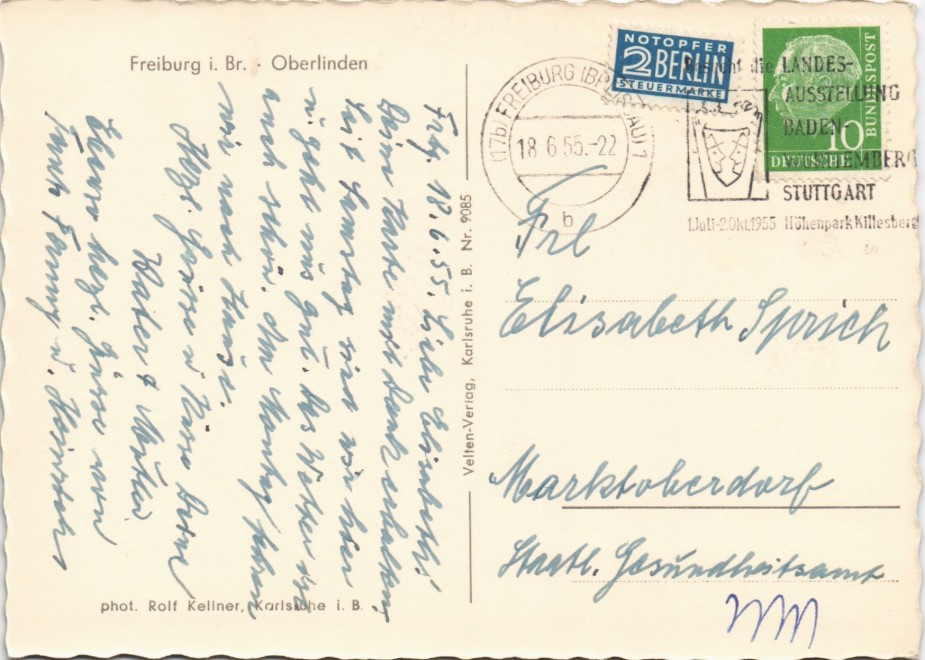 Freiburg i. Br. · Oberlinden
Frbg. 18.6.55. Liebe Elisabeth!
Deine Karte mit Dank erhalten,
seit Samstag sind wir hier
u. geht uns gut. Das Wetter ist
auch schön. Am Montag fahren
wir nach Hause.
Herzl. Grüsse u. Küsse Deine
Vater & Mutter
Ebenso herzl. Grüsse von
Tante Fanny u.
phot. Rolf Kellner, Karlsruhe i. B.
Velten-Verlag, Karlsruhe i. B. Nr. 9085
NOTOPFER
2 BERLIN
STEUERMARKE
(17b) FREIBURG
18.6.55.-22
b
die LANDES-
AUSSTELLUNG
BADEN-
STUTTGART
1.Juli-2.Okt.1955 Höhenpark Killesberg
10
DEUTSCHE
BUNDESPOST
Frl
Elisabeth Sprich
Marktoberdorf
Staatl. Gesundheitsamt